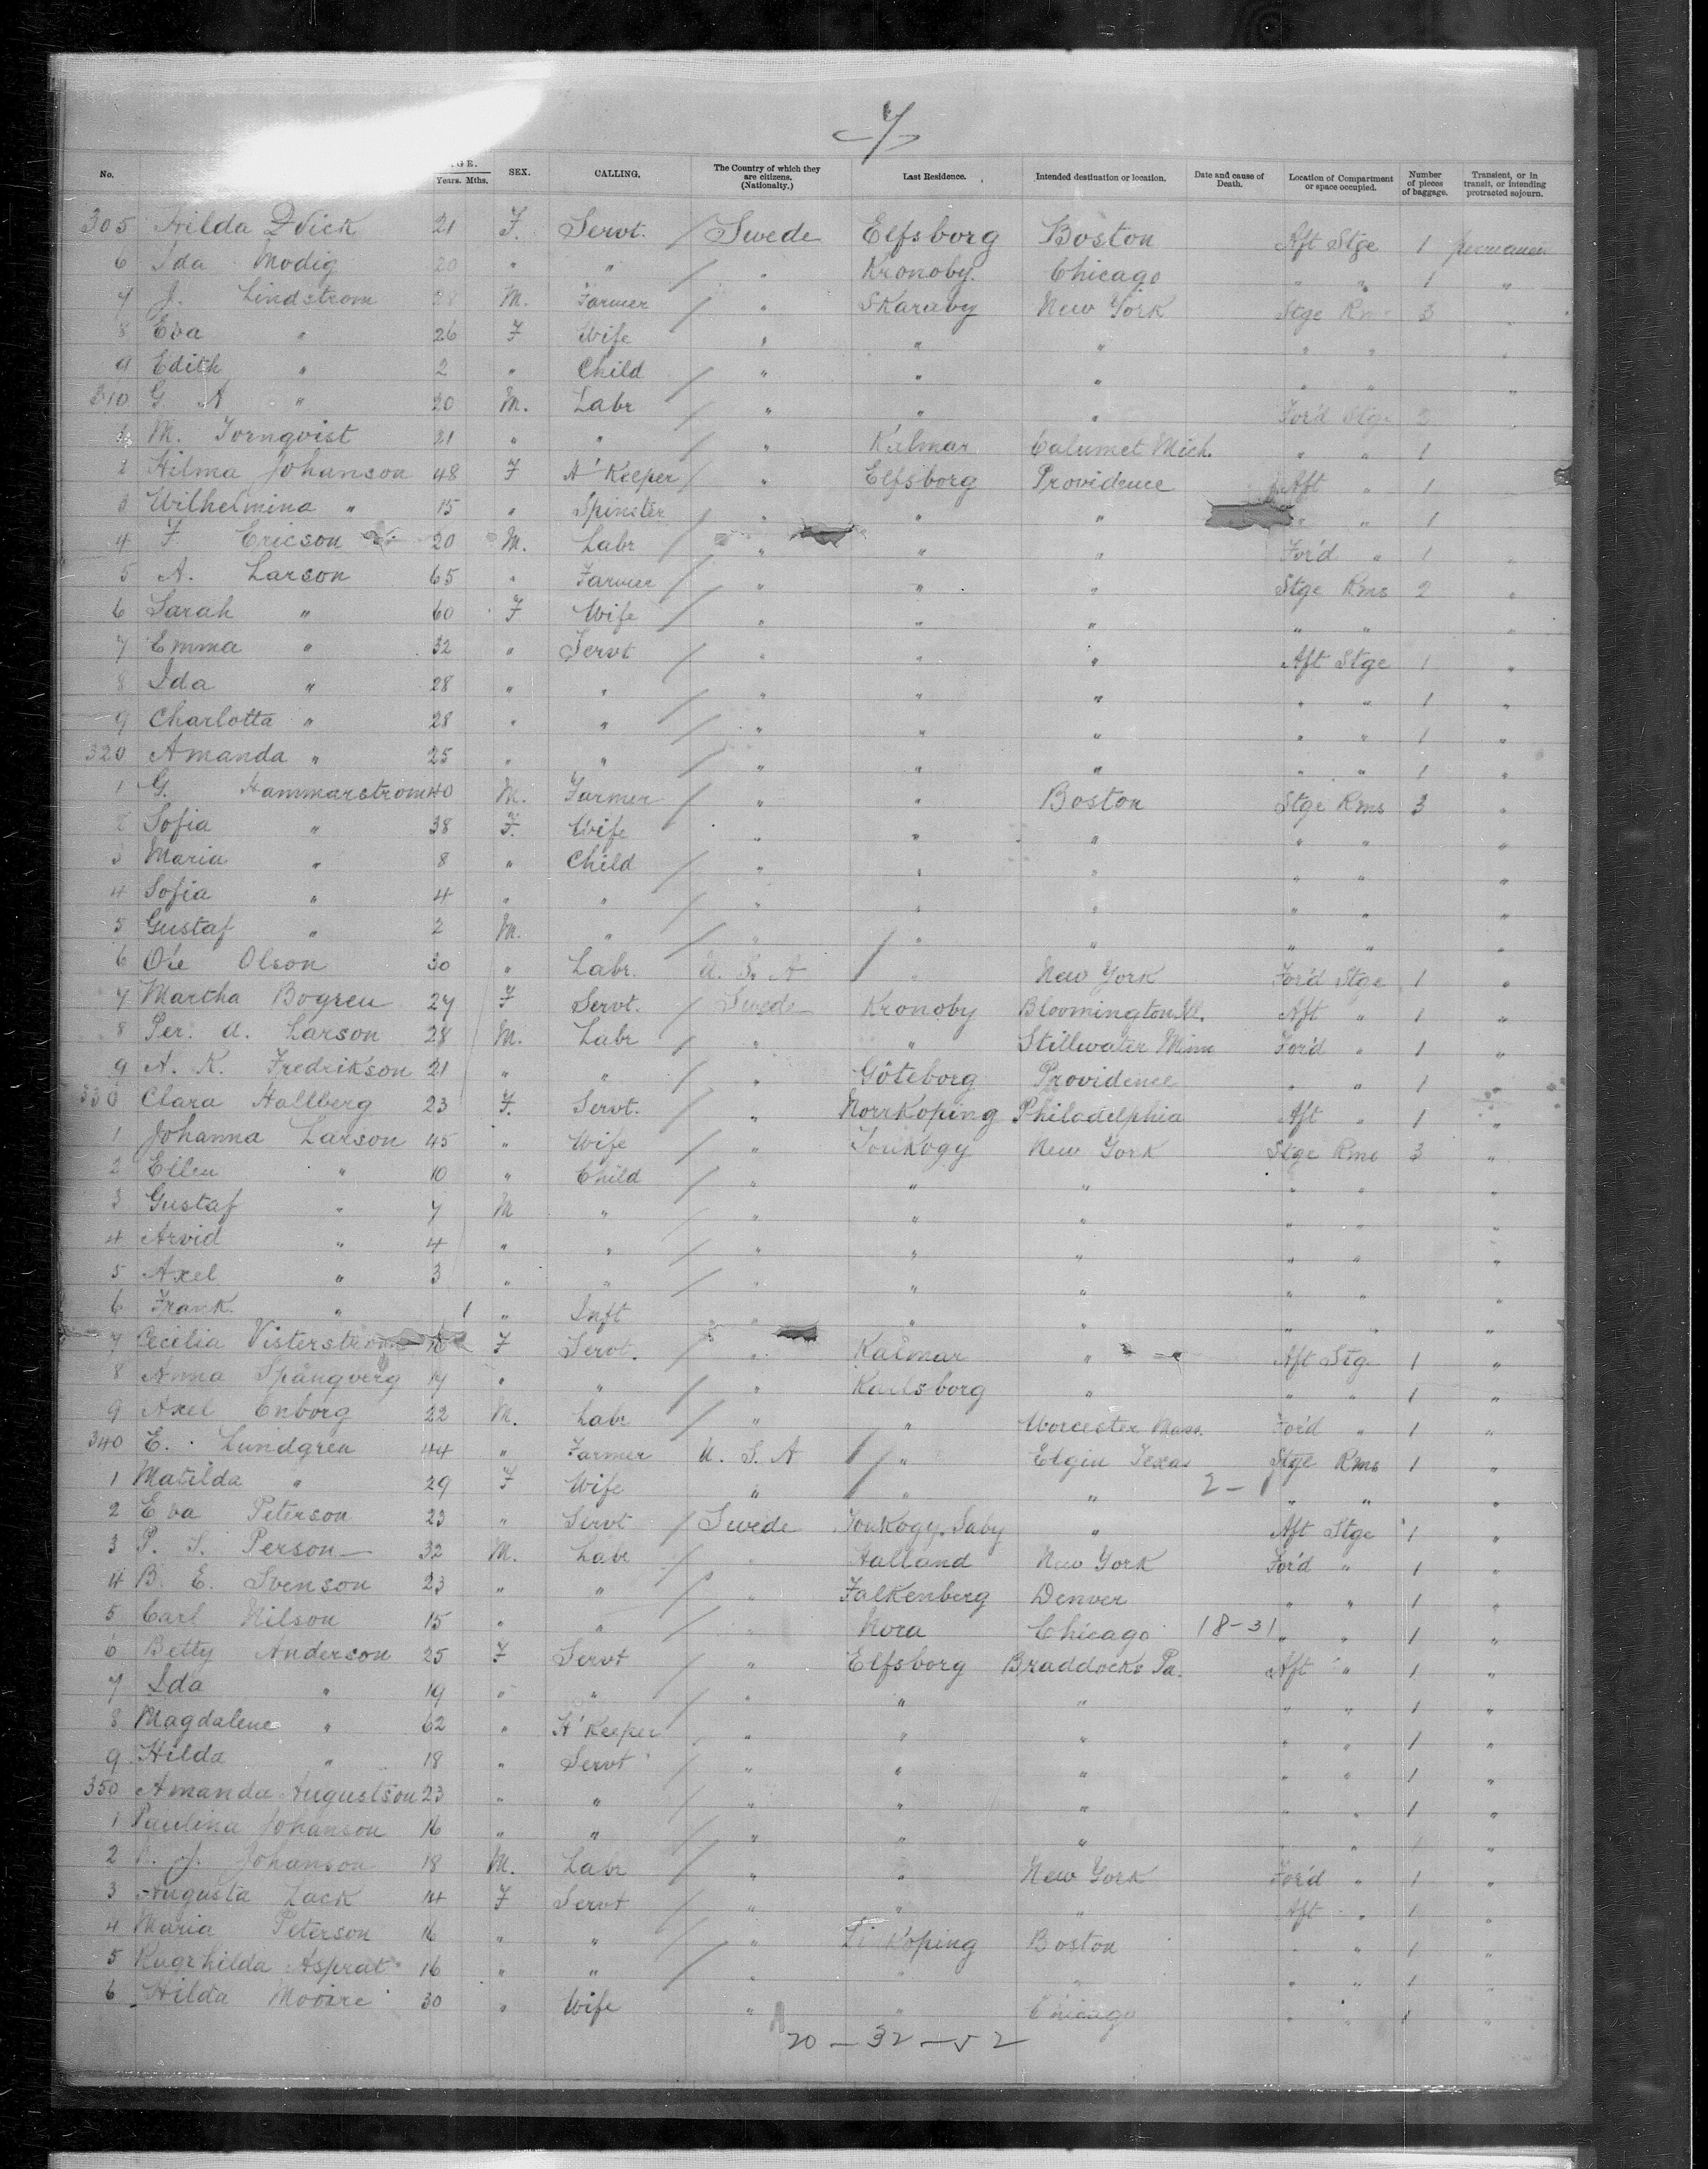 7
No. AGE. Years. Mths. SEX. CALLING. The Country of which they are citizens. (Nationalty.) Last Residence. Intended destination or location. Date and cause of Death. Location of Compartment or space occupied. Number of pieces of baggage. Transient, or in transit, or intending protracted sojourn.
305 Hilda Qvick 21 F. Servt. / Swede Elfsborg Boston Aft Stge 1
6 Ida Modig 20 " " / " Kronoby. Chicago " " 1 "
7 J. Lindstrom 28 M. Farmer / " Skaraby New York Stge Rms 3 "
8 Eva " 26 F Wife " " " " " "
9 Edith " 2 " Child / " " " " " "
310 G A " 20 M. Labr / " " " For'd Stge 2 "
1 M. Tornqvist 21 " " / " Kalmar Calumet Mich. " " 1
2 Hilma Johanson 48 F H'Keeper / " Elfsborg Providence Aft " 1
3 Wilhelmina " 15 " Spinster / " " " " " 1
4 F Ericson 20 M. Labr / " " " For'd " 1 "
5 A. Larson 65 " Farmer / " " " Stge Rms 2 "
6 Sarah " 60 F Wife / " " " " " "
7 Emma " 32 " Servt / " " " Aft Stge 1 "
8 Ida " 28 " " / " " " " " 1 "
9 Charlotta " 28 " " / " " " " " 1 "
320 Amanda " 25 " " / " " " " " 1 "
1 G. Hammarstrom 40 M. Farmer / " " Boston Stge Rms 3 "
2 Sofia " 38 F. Wife " " " " " "
3 Maria " 8 " Child / " " " " " "
4 Sofia " 4 " " / " " " " " "
5 Gustaf " 2 M. " / " / " " " " "
6 Ole Olson 30 " Labr. U. S. A / " New York For'd Stge 1 "
7 Martha Bogren 27 F Servt. Swede Kronoby Bloomington Ill. Aft " 1 "
8 Per. A. Larson 28 M. Labr / " " Stillwater Minn For'd " 1 "
9 A. K. Fredrikson 21 " " / " Göteborg Providence " " 1 "
330 Clara Hallberg 23 F. Servt. / " Norrkoping Philadelphia Aft " 1 "
1 Johanna Larson 45 " Wife / " New York Stge Rms 3 "
2 Ellen " 10 " Child / " " " " " "
3 Gustaf " 7 M " / " " " " " "
4 Arvid " 4 " " / " " " " " "
5 Axel " 3 " " / " " " " " "
6 Frank " 1 " Inft " " " " " "
7 Cecilia F Servt. / " Kalmar " Aft Stg 1 "
8 Anna Spångverg 17 " " / " Karlsborg " " " 1 "
9 Axel Enborg 22 M. Labr / " " Worcester Mass. For'd " 1 "
340 E. Lundgren 44 " Farmer U. S. A / " Elgin Texas Stge Rms 1 "
1 Matilda " 29 F Wife " / " " 2 - 1 " " "
2 Eva Peterson 23 " Servt / Swede " Aft Stge 1 "
3 P. S. Person 32 M. Labr / " Halland New York For'd " 1 "
4 B. E. Svenson 23 " " / " Falkenberg Denver " " 1 "
5 Carl Nilson 15 " " / " Nora Chicago 18-31 " " 1 "
6 Betty Anderson 25 F Servt / " Elfsborg Braddocks Pa. Aft " 1 "
7 Ida " 19 " " / " " " " " 1 "
8 Magdalene " 62 " H'Keeper " " " " " 1 "
9 Hilda " 18 " Servt / " " " " " 1 "
350 Amanda Augustson 23 " " / " " " " " 1 "
1 Paulina Johanson 16 " " / " " " " " 1 "
2 J. Johanson 18 M. Labr / " " New York For'd " 1 "
3 Augusta Lack 14 F Servt / " " " Aft " 1 "
4 Maria Peterson 16 " " / " Boston " " 1 "
5 16 " " / " " " " " 1 "
6 Hilda 30 " Wife " " Chicago " " 1 "
20 - 32 - 52